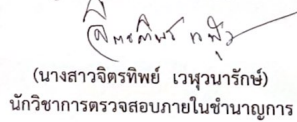 (นางสาวจิตรทิพย์ เวฬุวนารักษ์)
นักวิชาการตรวจสอบภายในชำนาญการ